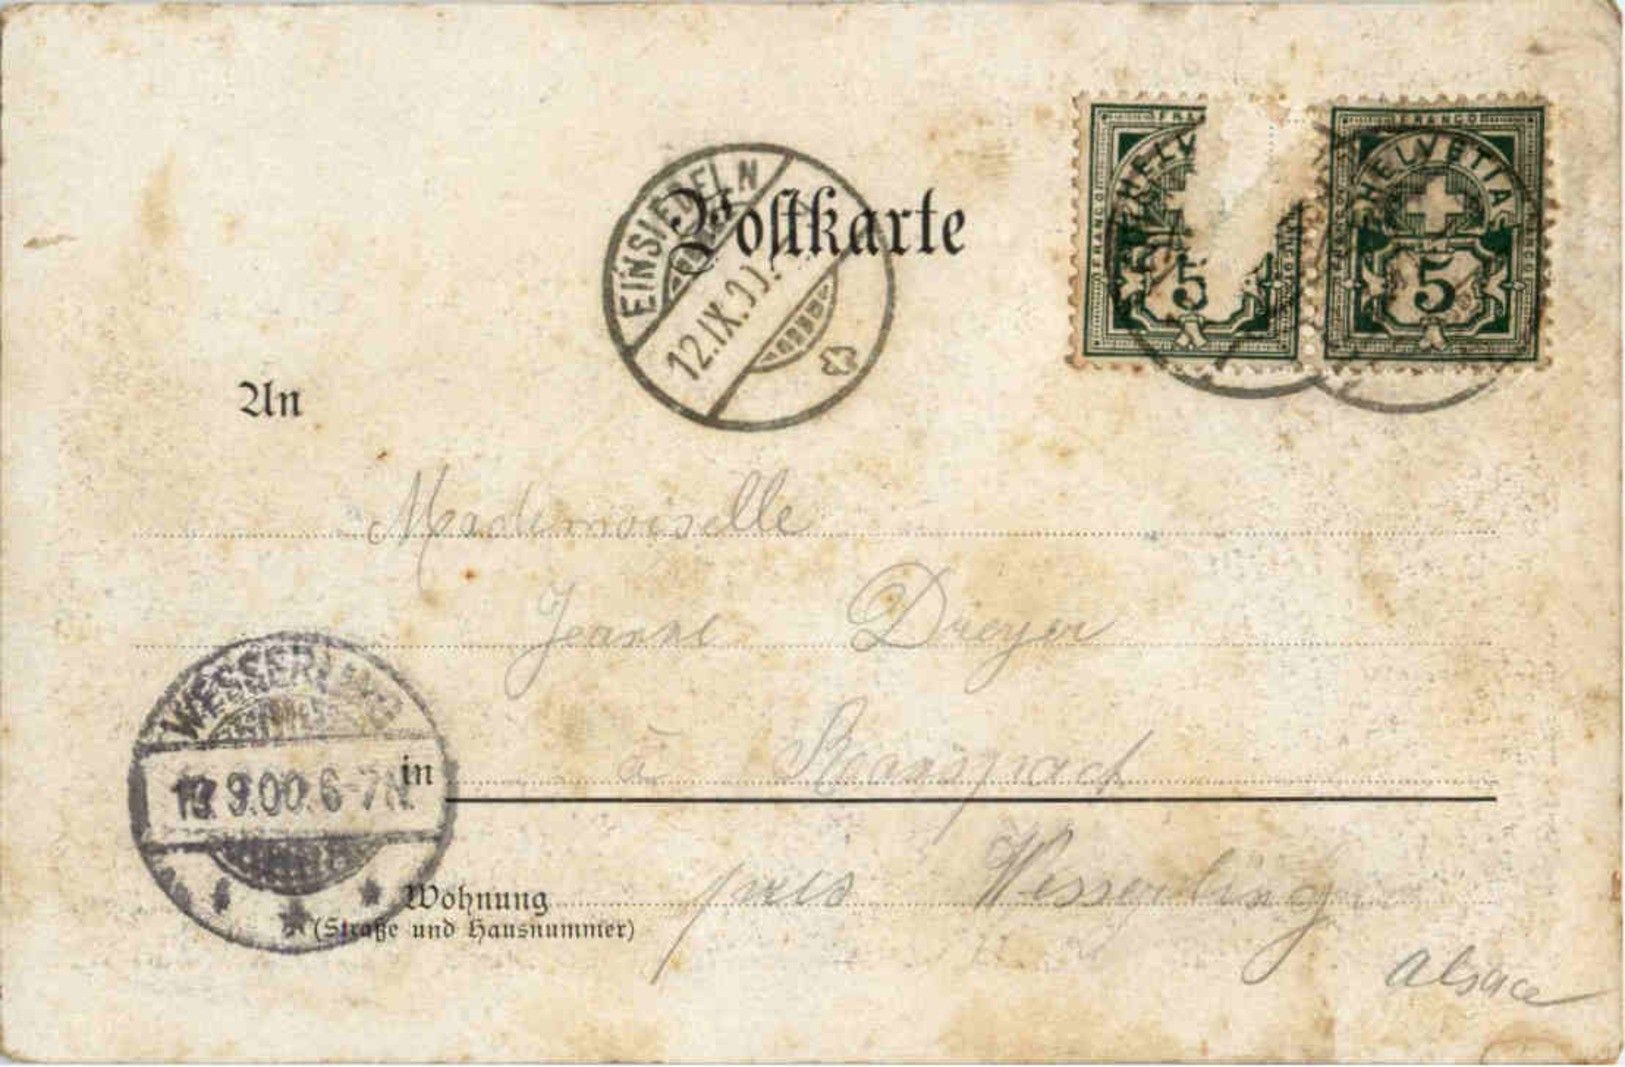 Postkarte
EINSIEDELN
12.IX.00.
FRANCO HELVETIA 5
FRANCO HELVETIA 5
An
Mademoiselle
Jeanne Dreyer
in à Ranspach
près Wesserling
Alsace
WESSERLING
13.9.00.6-7N.
Wohnung
(Straße und Hausnummer)